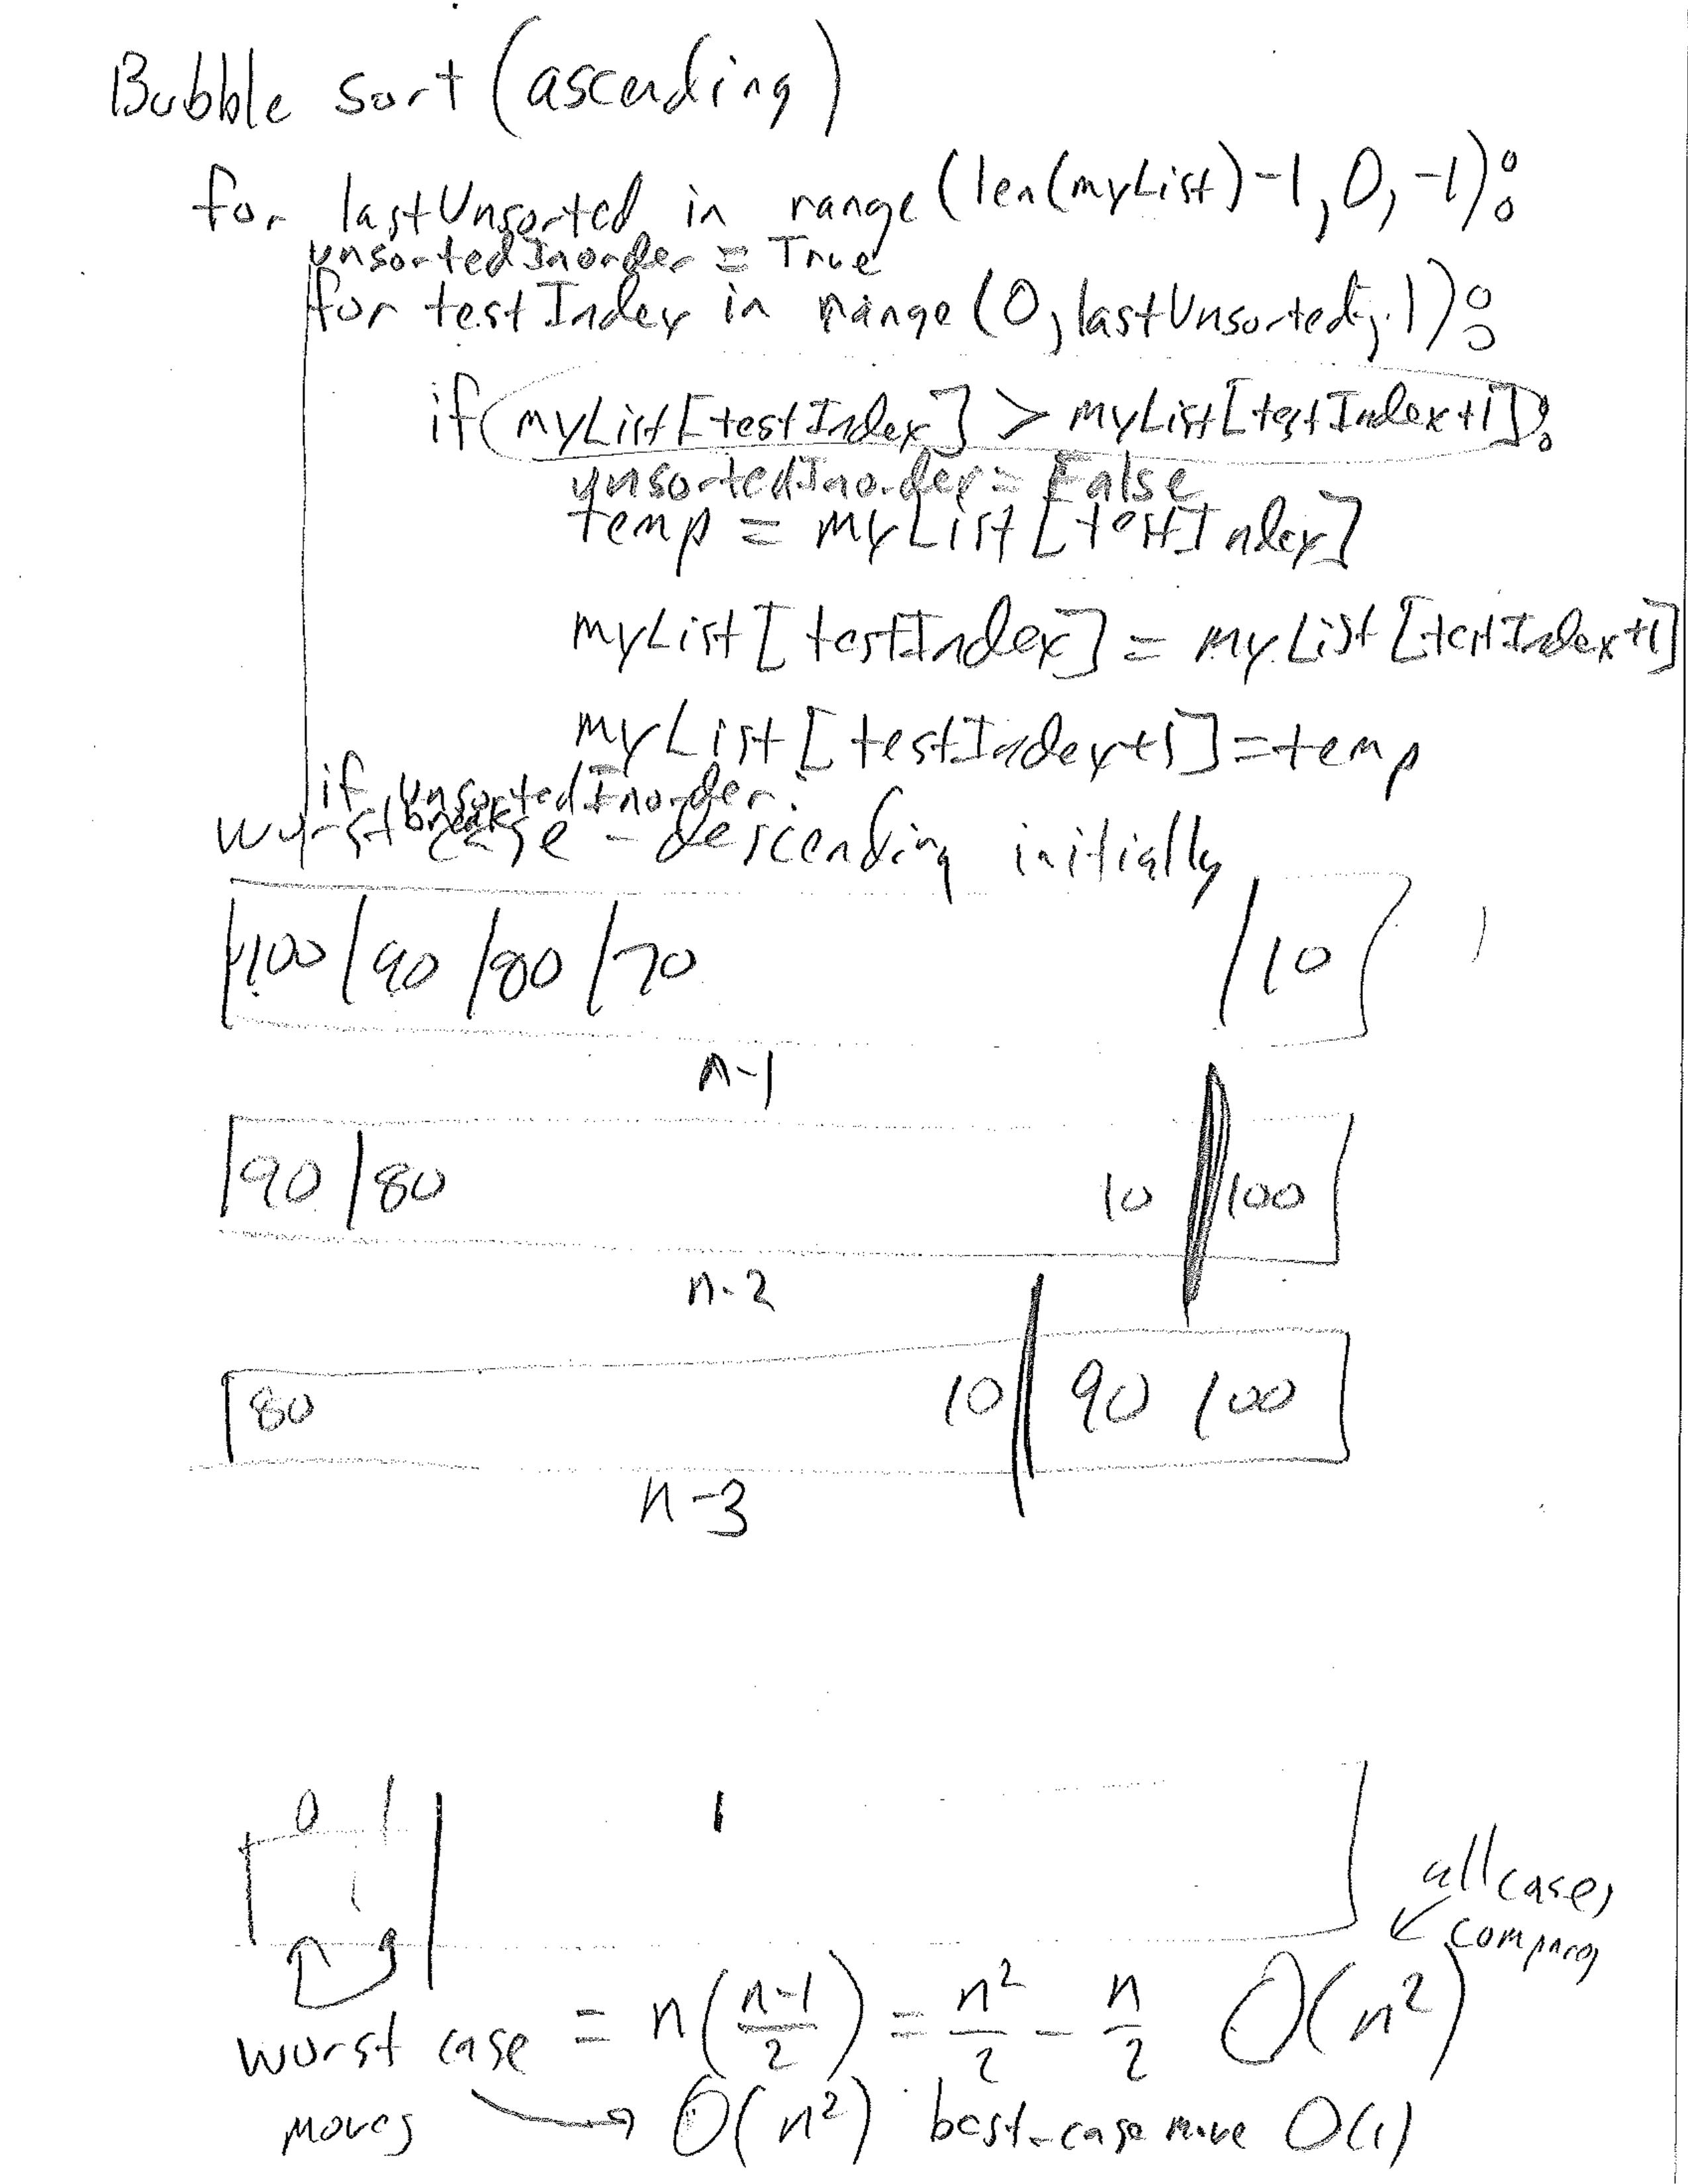 Bubble sort (ascending)
for lastUnsorted in range (len(myList)-1, 0, -1):
unsortedInorder = True
for testIndex in range (0, lastUnsorted, 1):
if myList[testIndex] > myList[testIndex+1]:
unsortedInorder = False
temp = myList[testIndex]
myList[testIndex] = myList[testIndex+1]
myList[testIndex+1] = temp
if unsortedInorder:
break
worst case - descending initially
100 90 80 70 10
n-1
90 80 10 100
n-2
80 10 90 100
n-3
0 1 1
all cases
compares
worst case = n(n-1/2) = n²/2 - n/2 O(n²)
moves → O(n²) best-case move O(1)